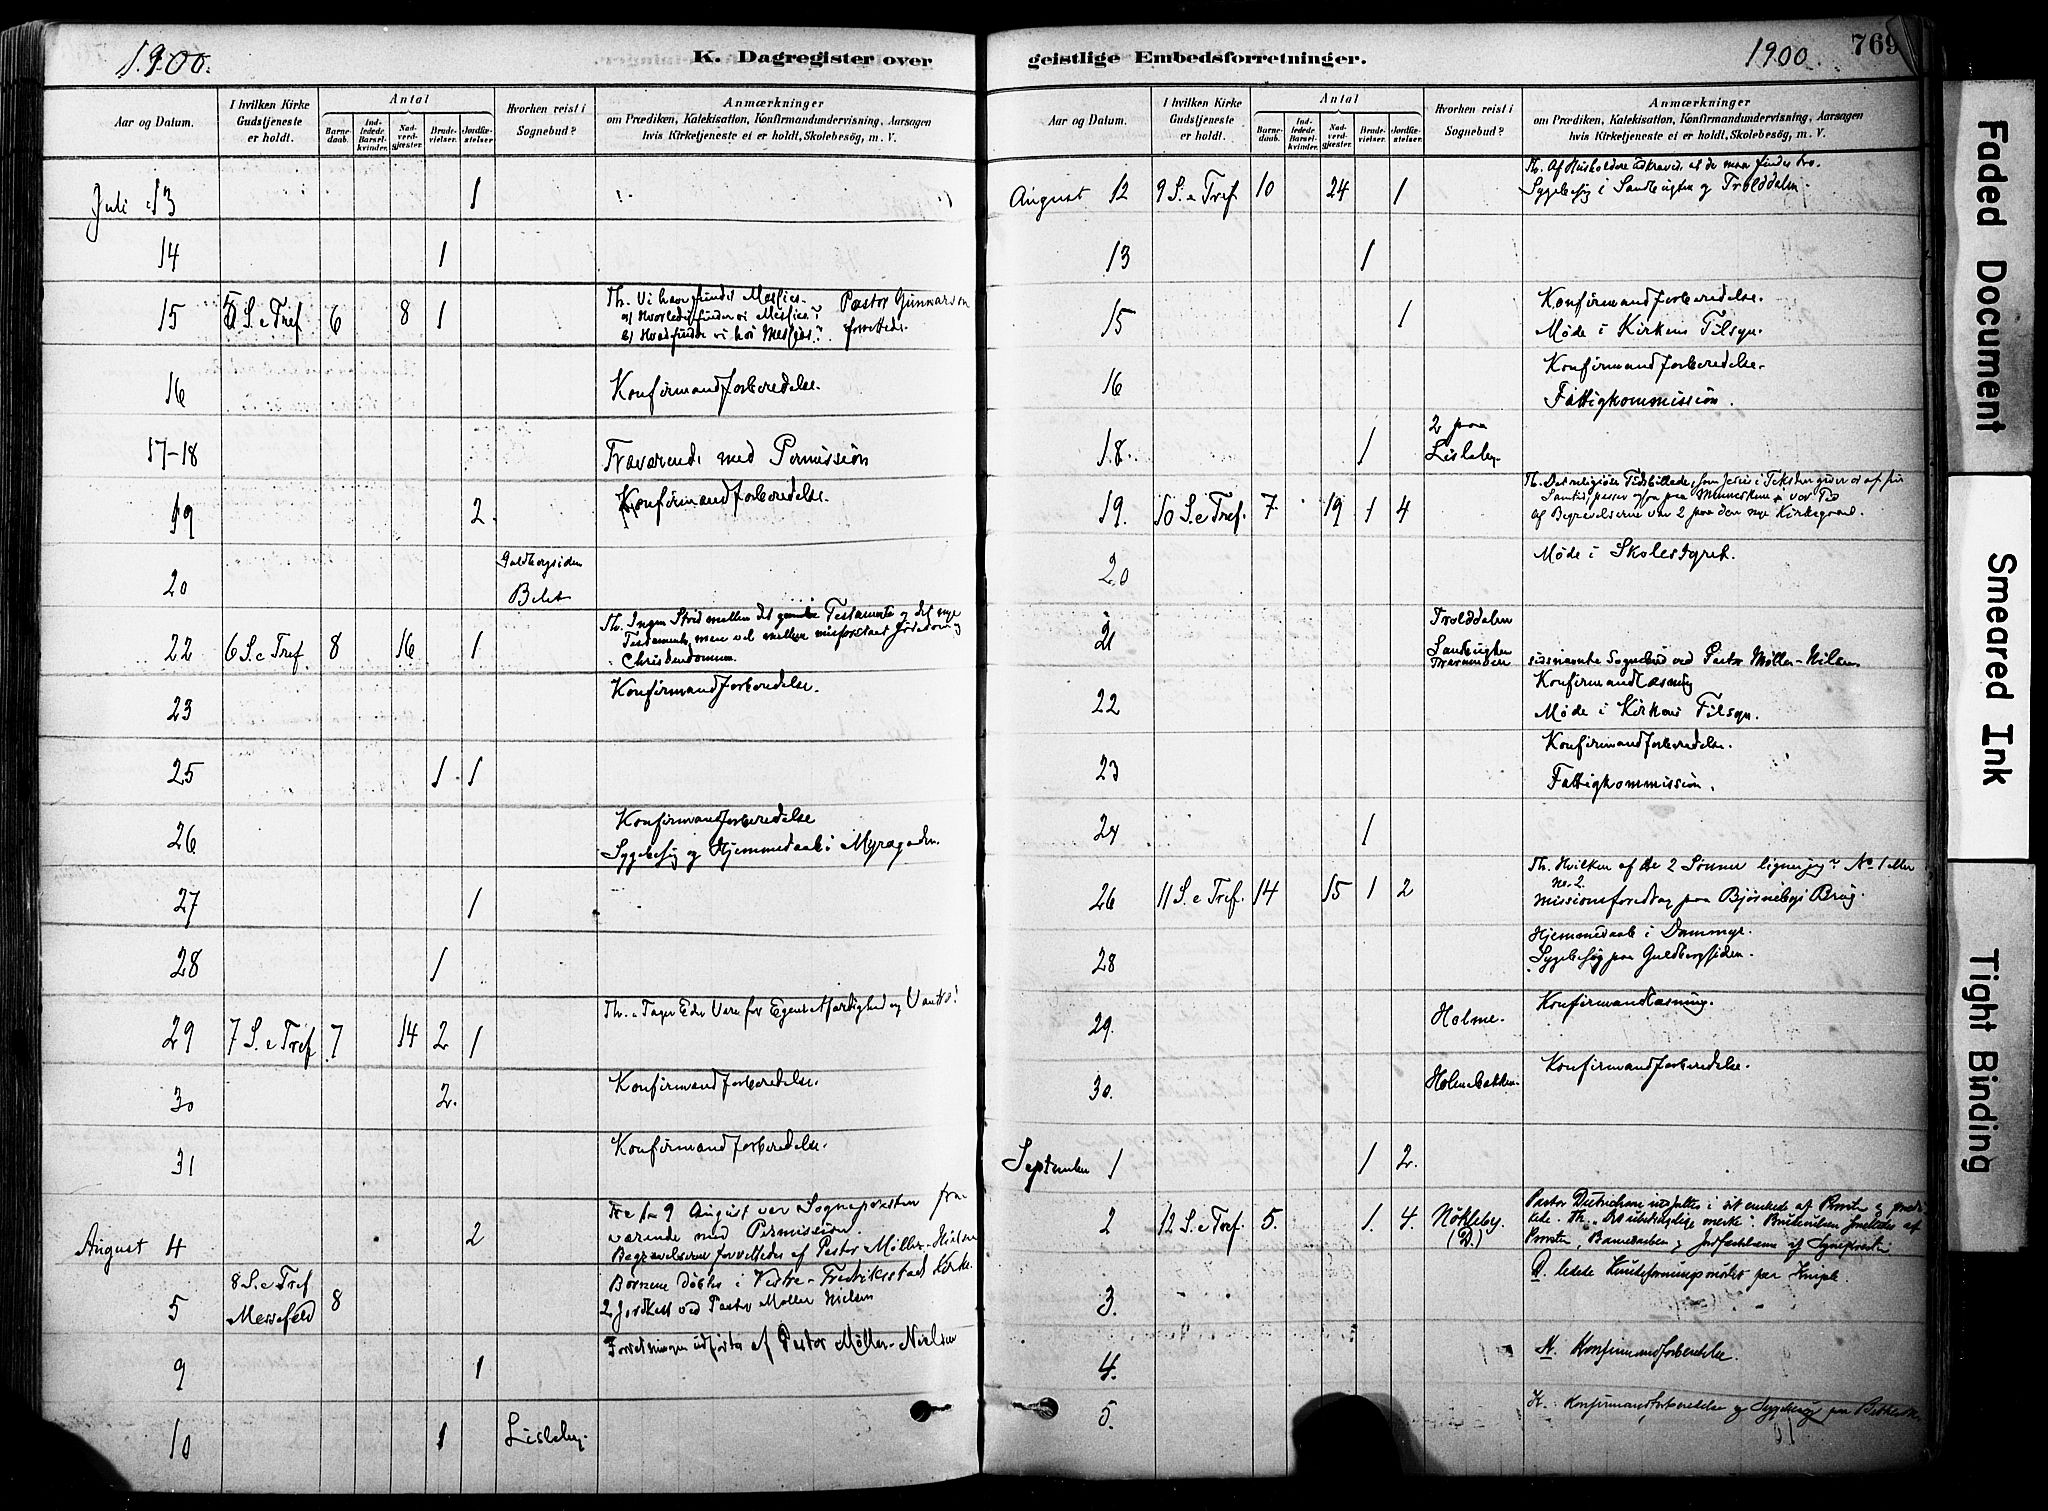 1900.
K. Dagregister over
Aar og Datum.
I hvilken Kirke Gudstjeneste er holdt.
Antal
Barnedaab.
Indledede Barselkvinder.
Nadverdgjæster.
Brudevielser.
Jordfæstelser
Hvorhen reist i Sognebud?
Anmærkninger
om Prædiken, Katekisation, Konfirmandundervisning, Aarsagen
hvis Kirketjeneste ei er holdt, Skolebesøg, m. V.
Juli 13 1
14 1
15 5 S. e Tref 6 8 1 Th. Vi have fundet Messias. Pastor Gunnarson
a) Hvorledes finder vi Messias? forrettede.
b) Hvad finder vi hos Messias?
16 Konfirmandforberedelse.
17-18 Fraværende med Permission
19 2. Konfirmandforberedelse.
20 Guldbergsiden
22 6 S. e Tref. 8 16 1 Th. Ingen Strid mellem det gamle Testamente og det nye
Testamente, men vel mellem misforstaaet Jødedom og
Christendommen.
23 Konfirmandforberedelse.
25 1 1
26 Konfirmandforberedelse
Sygebesøg og Hjemmedaab i Myragaden.
27 1
28 1
29 7 S. e Tref 7 14 2 1
30 2. Konfirmandforberedelse.
31 Konfirmandforberedelse.
August 4 2 Fra 1-9 August var Sognepræsten fra-
værende med Permission.
Begravelserne forrettedes af Pastor Møller-Nielsen
5 8 S. e Tref Messefald 8 Børnene døbtes i Vestre-Fredriksstad Kirke.
2 Jordkast ved Pastor Møller Nielsen
9 1 Forretningen udførtes af Pastor Møller-Nielsen
10 1 Lisleby.
geistlige Embedsforretninger.
1900.
769
Aar og Datum.
I hvilken Kirke Gudstjeneste er holdt.
Antal
Barnedaab.
Indledede Barselkvinder.
Nadverdgjæster.
Brudevielser.
Jordfæstelser
Hvorhen reist i Sognebud?
Anmærkninger
om Prædiken, Katekisation, Konfirmandundervisning, Aarsagen
hvis Kirketjeneste ei er holdt, Skolebesøg, m. V.
August 12 9 S. e Tref 10 24 1 Th. Af Husholdere udkræves, at de maa findes tro.
Sygebesøg i Sandbugten og Trolddalen.
13 1
15 1 Konfirmandforberedelse.
Møde i Kirkens Tilsyn.
16 Konfirmandforberedelse.
Fattigkommission.
18. 1 2 paa Lisleby.
19. 10 S. e Tref. 7 19 1 4 Th. Det religiøse Tidsbillede, som Jesus i Teksten giver os af sin
Samtid, passer ogsaa paa Menneskene i vor Tid
Af Begravelserne var 2 paa den nye Kirkegaard.
20 Møde i Skolestyret.
21 Trolddalen
Sandbugten
sidsnævnte Sognebud ved Pastor Møller-Nilsen
22 Konfirmandlæsning
Møde i Kirkens Tilsyn.
23 Konfirmandforberedelse.
Fattigkommission.
24 1
26 11 S. e Tref. 14 15 1 2 Th. Hvilken af de 2 Sønner ligner jeg? No 1 eller
No. 2.
Missionsforedrag paa Bjørnebys Brug.
28 Hjemmedaab i Dammyr.
Sygebesøg paa Guldbergsiden.
29. Holme. Konfirmandlæsning.
30. Holmebakken. Konfirmandforberedelse.
September 1 1 2.
2 12 S. e Tref. 5. 1. 4. Nøkleby. (D.)
3.
4. Konfirmandforberedelse.
5. K. Konfirmandforberedelse og Sygebesøg paa
Faded Document
Smeared Ink
Tight Binding